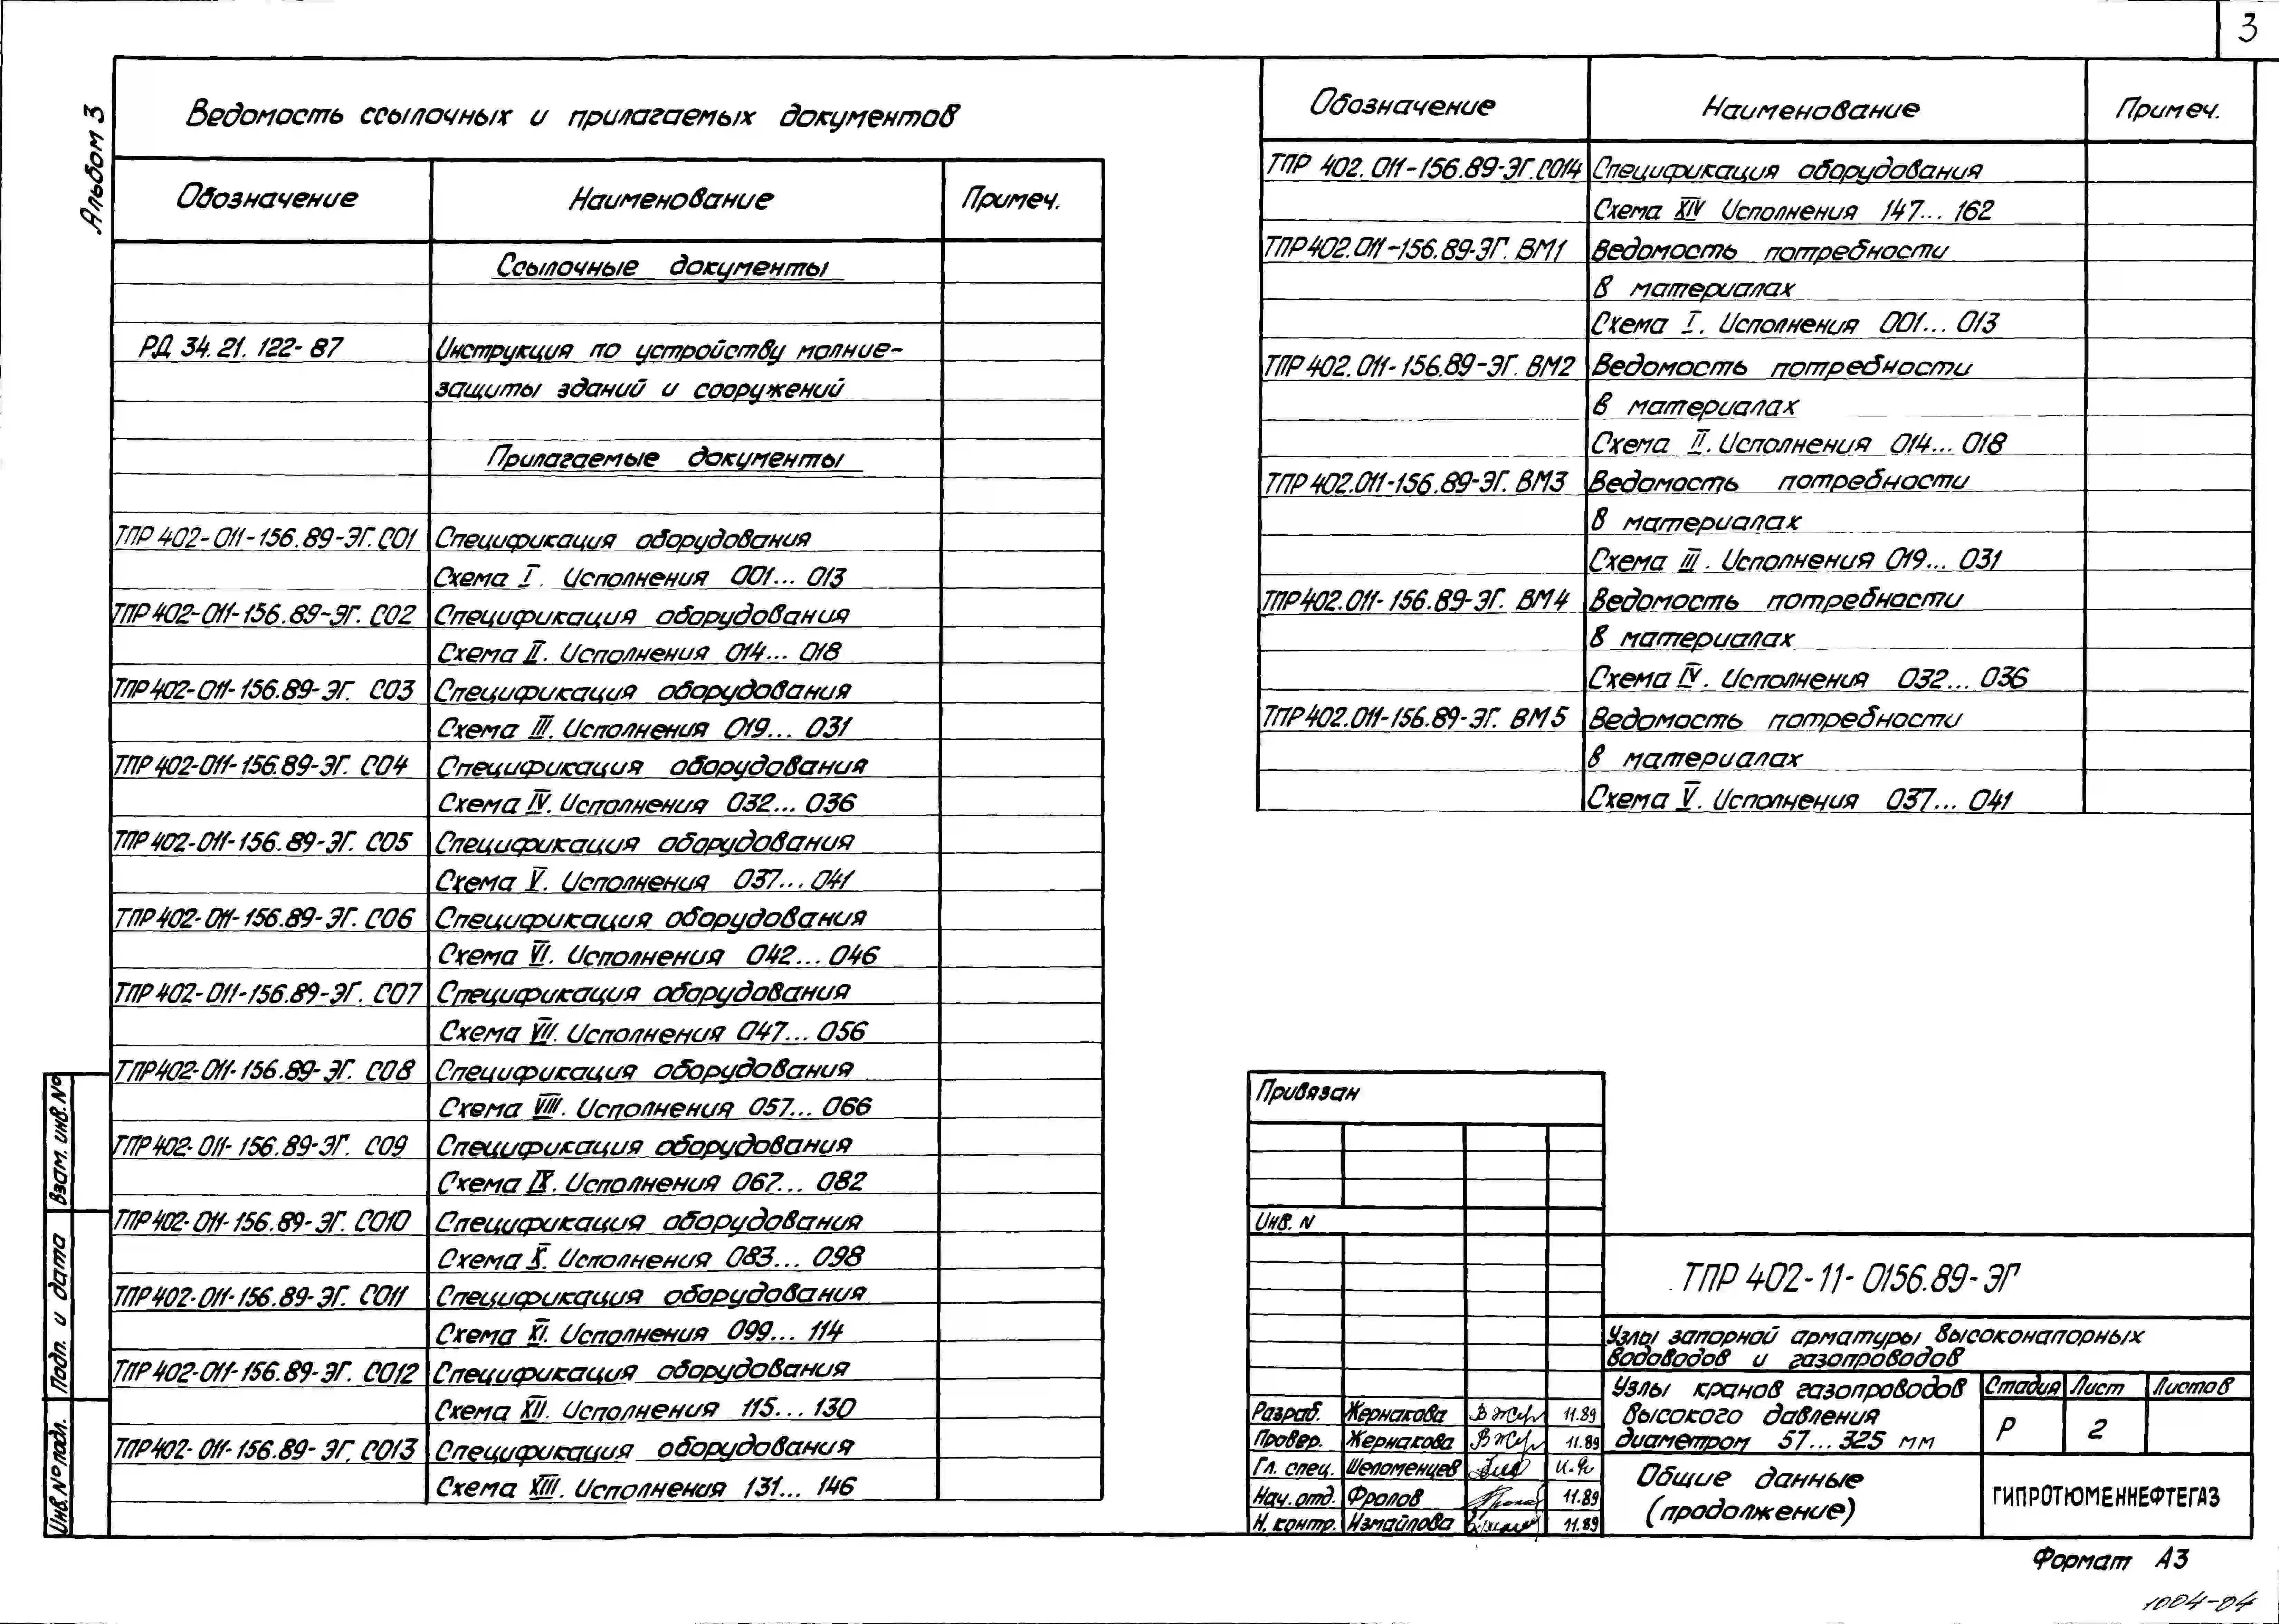 3
Альбом 3
Ведомость ссылочных и прилагаемых документов
Обозначение Наименование Примеч.
Ссылочные документы
РД 34.21.122-87 Инструкция по устройству молние-
защиты зданий и сооружений
Прилагаемые документы
ТПР 402-011-156.89-ЭГ.СО1 Спецификация оборудования
Схема I. Исполнения 001... 013
ТПР 402-011-156.89-ЭГ. СО2 Спецификация оборудования
Схема II. Исполнения 014... 018
ТПР 402-011-156.89-ЭГ. СО3 Спецификация оборудования
Схема III. Исполнения 019... 031
ТПР 402-011-156.89-ЭГ. СО4 Спецификация оборудования
Схема IV. Исполнения 032... 036
ТПР 402-011-156.89-ЭГ. СО5 Спецификация оборудования
Схема V. Исполнения 037... 041
ТПР 402-011-156.89-ЭГ. СО6 Спецификация оборудования
Схема VI. Исполнения 042... 046
ТПР 402-011-156.89-ЭГ. СО7 Спецификация оборудования
Схема VII. Исполнения 047... 056
ТПР 402-011-156.89-ЭГ. СО8 Спецификация оборудования
Схема VIII. Исполнения 057... 066
ТПР 402-011-156.89-ЭГ. СО9 Спецификация оборудования
Схема IX. Исполнения 067... 082
ТПР 402-011-156.89-ЭГ. СО10 Спецификация оборудования
Схема X. Исполнения 083... 098
ТПР 402-011-156.89-ЭГ. СО11 Спецификация оборудования
Схема XI. Исполнения 099... 114
ТПР 402-011-156.89-ЭГ. СО12 Спецификация оборудования
Схема XII. Исполнения 115... 130
ТПР 402-011-156.89-ЭГ. СО13 Спецификация оборудования
Схема XIII. Исполнения 131... 146
Обозначение Наименование Примеч.
ТПР 402.011-156.89-ЭГ.СО14 Спецификация оборудования
Схема XIV Исполнения 147... 162
ТПР 402.011-156.89-ЭГ. ВМ1 Ведомость потребности
в материалах
Схема I. Исполнения 001... 013
ТПР 402.011-156.89-ЭГ. ВМ2 Ведомость потребности
в материалах
Схема II. Исполнения 014... 018
ТПР 402.011-156.89-ЭГ. ВМ3 Ведомость потребности
в материалах
Схема III. Исполнения 019... 031
ТПР 402.011-156.89-ЭГ. ВМ4 Ведомость потребности
в материалах
Схема IV. Исполнения 032... 036
ТПР 402.011-156.89-ЭГ. ВМ5 Ведомость потребности
в материалах
Схема V. Исполнения 037... 041
Взам. инв. №
Подп. и дата
Инв. № подл.
Привязан
Инв. N
ТПР 402-11-0156.89-ЭГ
Узлы запорной арматуры высоконапорных
водоводов и газопроводов
Узлы кранов газопроводов
высокого давления
диаметром 57... 325 мм
Стадия Лист Листов
Р 2
Разраб. Жернакова 11.89
Провер. Жернакова 11.89
Гл. спец. Шеломенцев
Нач. отд. Фролов 11.89
Н. контр. Измайлова 11.89
Общие данные
(продолжение)
ГИПРОТЮМЕННЕФТЕГАЗ
Формат А3
1004-04